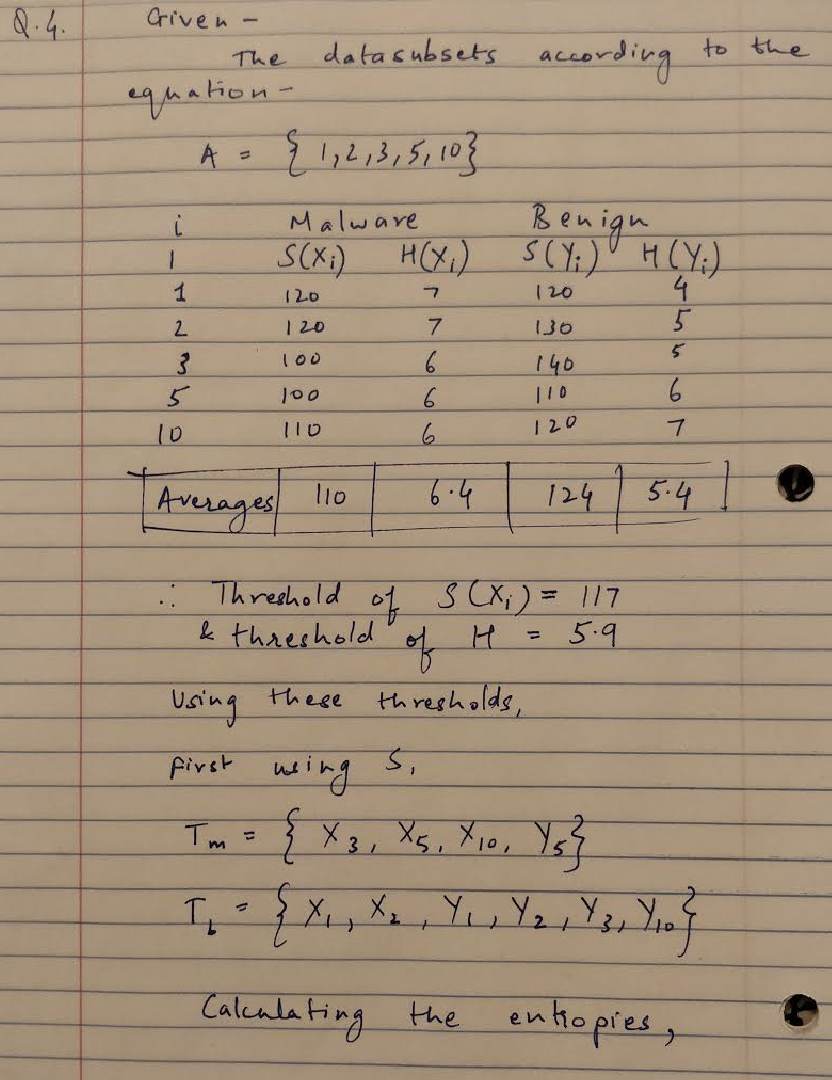 Q.4. Given -
The datasubsets according to the
equation -
A = { 1,2,3,5,10}
i Malware Benign
1 S(Xi) H(Xi) S(Yi) H(Yi)
1 120 7 120 4
2 120 7 130 5
3 100 6 140 5
5 100 6 110 6
10 110 6 120 7
Averages 110 6.4 124 5.4
∴ Threshold of S(Xi) = 117
& threshold of H = 5.9
Using these thresholds,
first using S,
Tm = { X3, X5, X10, Y5}
Tb = { X1, X2, Y1, Y2, Y3, Y10}
Calculating the entropies,